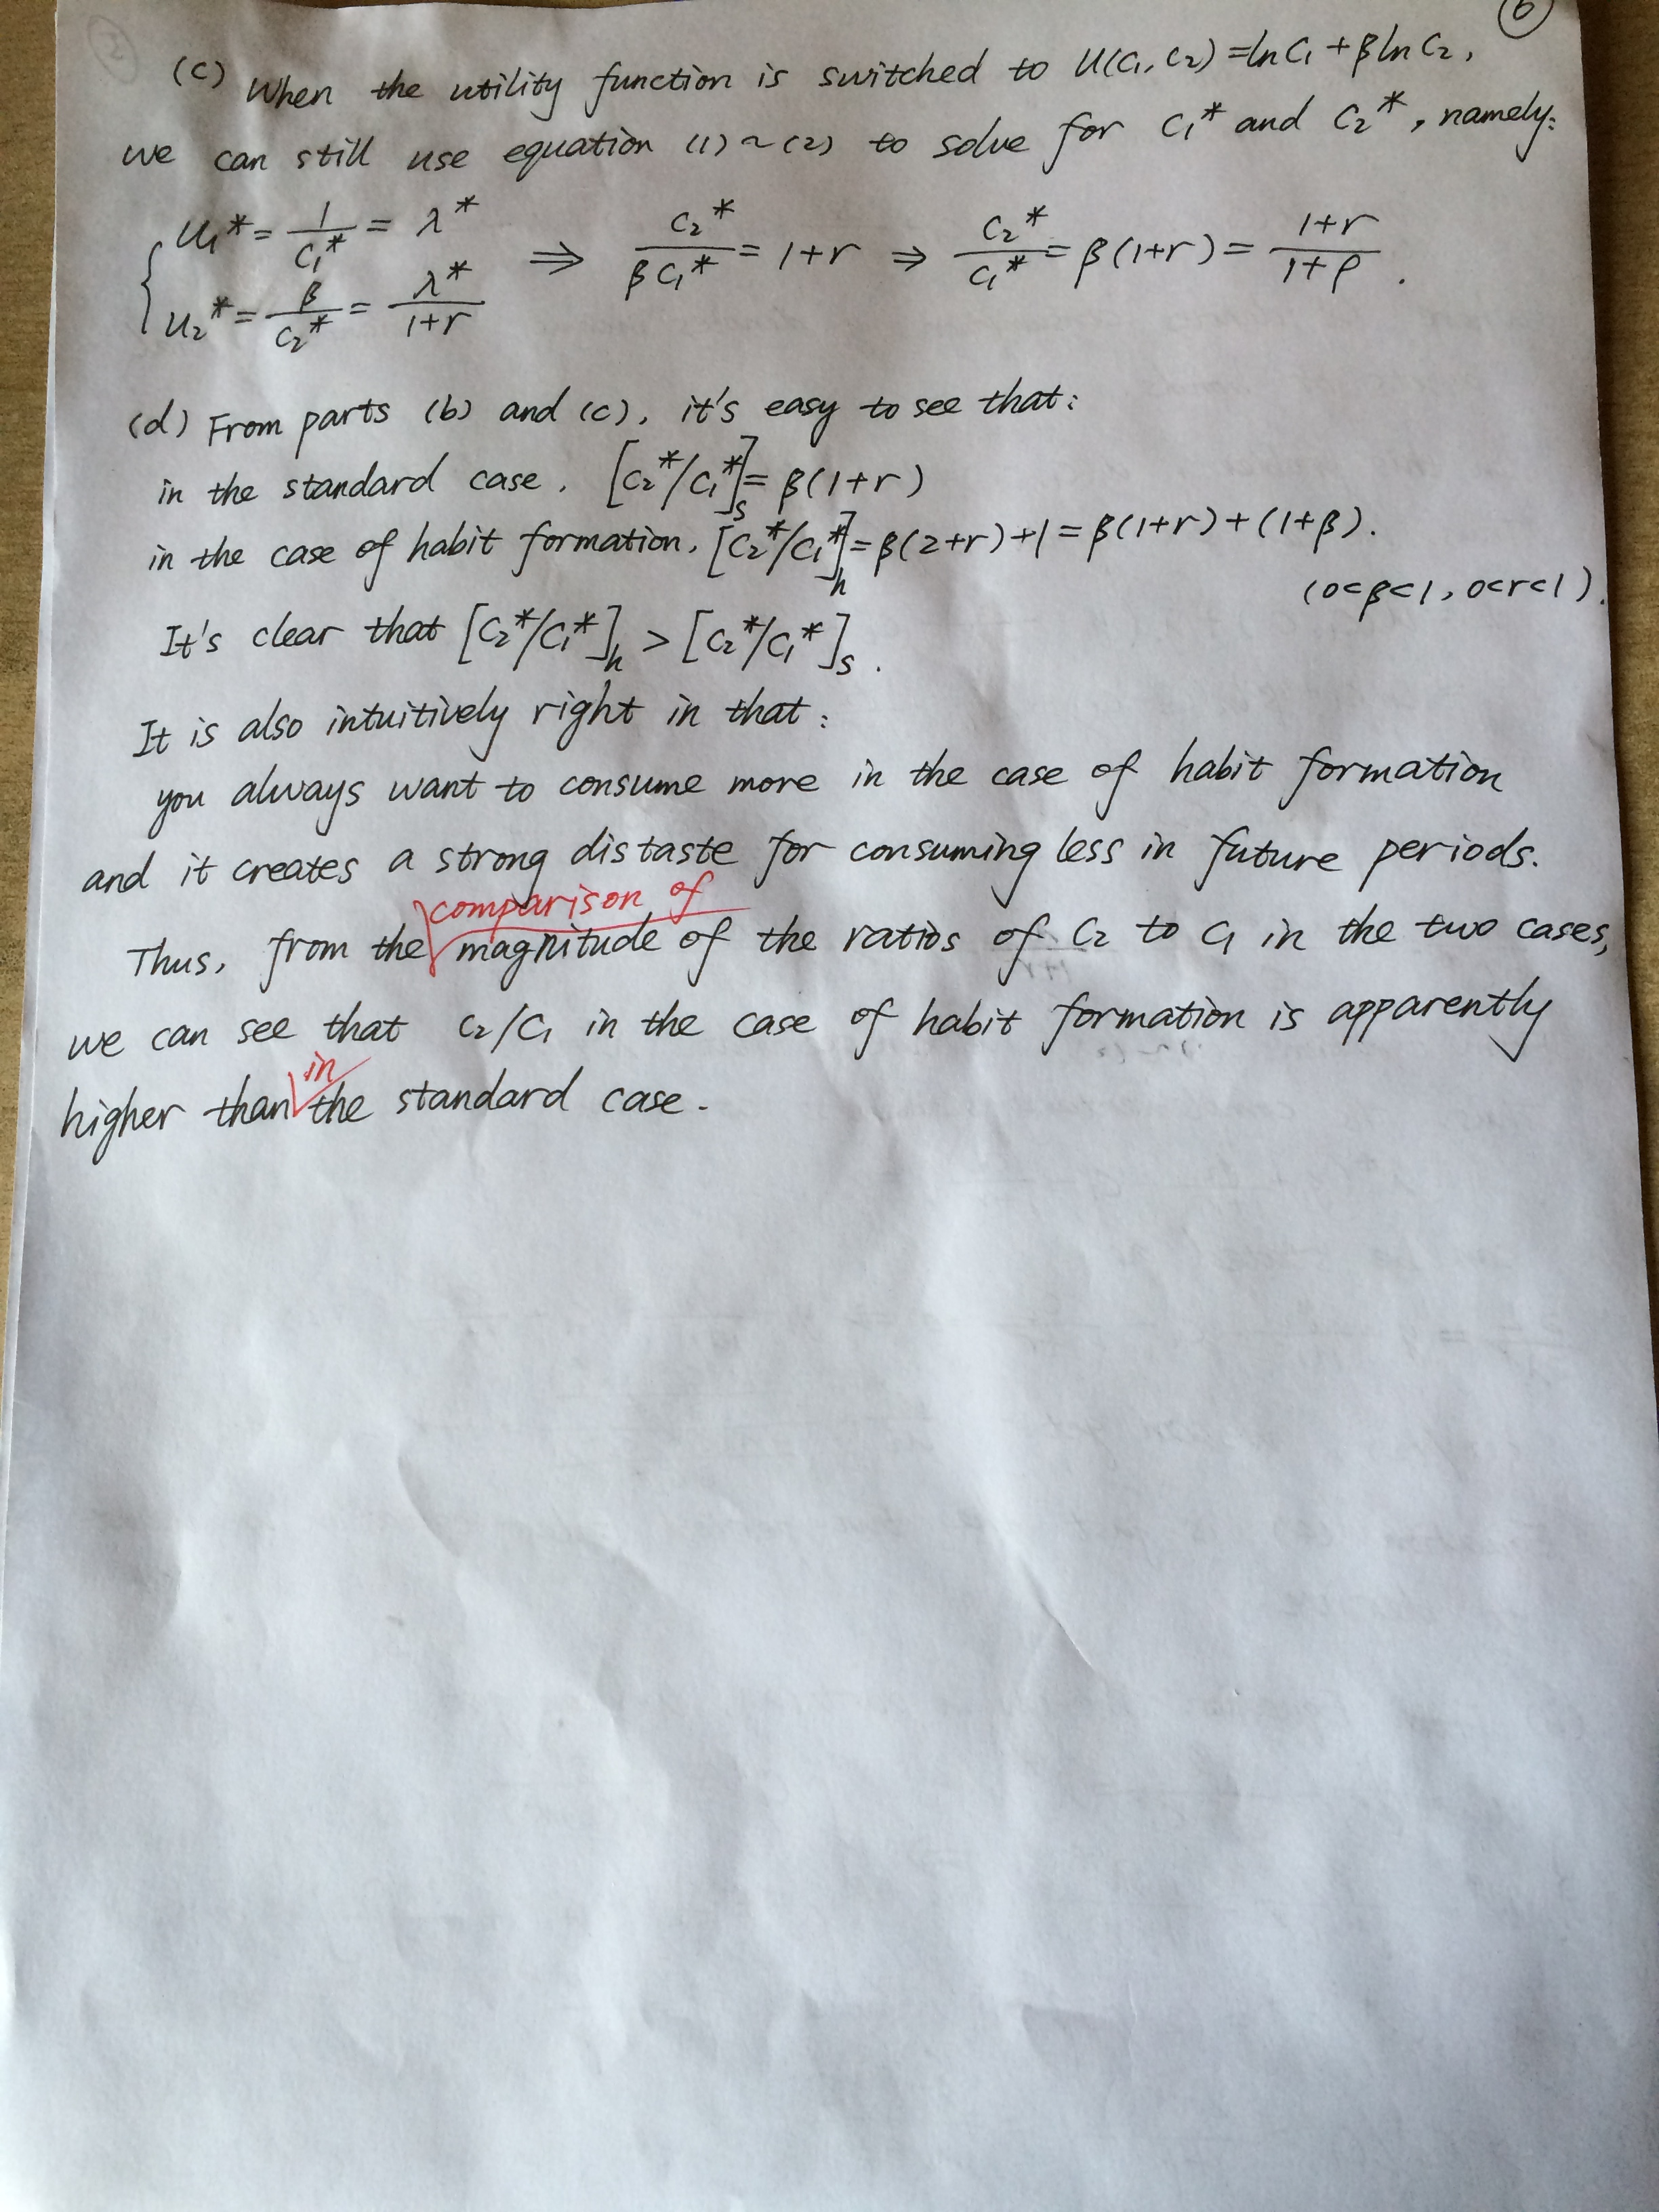 6
(c) When the utility function is switched to U(C₁, C₂) = ln C₁ + β ln C₂,
we can still use equation (1) ~ (2) to solve for C₁* and C₂*, namely:
{ U₁* = 1/C₁* = λ*
U₂* = β/C₂* = λ*/(1+r) ⇒ C₂*/(βC₁*) = 1+r ⇒ C₂*/C₁* = β(1+r) = (1+r)/(1+ρ).
(d) From parts (b) and (c), it's easy to see that:
in the standard case, [C₂*/C₁*]s = β(1+r)
in the case of habit formation, [C₂*/C₁*]h = β(2+r)+1 = β(1+r)+(1+β).
(0<β<1, 0<r<1).
It's clear that [C₂*/C₁*]h > [C₂*/C₁*]s.
It is also intuitively right in that:
you always want to consume more in the case of habit formation
and it creates a strong distaste for consuming less in future periods.
comparison of
Thus, from the magnitude of the ratios of C₂ to C₁ in the two cases,
we can see that C₂/C₁ in the case of habit formation is apparently
in
higher than the standard case.